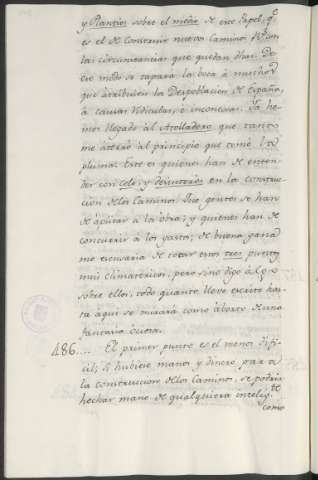 y Plantios sobre el medio de este Papel, qe
es el de Construir nuevos Caminos Rs. con
las circunstancias que quedan dhas. De
este modo se tapará la boca á muchos
que atribuien la Despoblacion de España,
á causas ridiculas, é inconexas. Ya he-
mos llegado al Atolladero que tanto
me aterró al principio que tomé la
pluma. Este es quienes han de enten-
der con celo, y desinterés en la construc-
cion de los Caminos. Que gentes se han
de aplicar á la obra; y quienes han de
concurrir á los gastos; de buena gana
me escusaria de tocar estos tres puntos
mui climatericos, pero sino digo algo
sobre ellos, todo quanto llevo escrito has-
ta aqui se mirará como aborto de una
fantasia ociosa.
486.... El primer punto es el menos difi-
cil; si hubiere manos y dinero para
la construccion de los Caminos, se podria
hechar mano de qualquiera intelige.te
como